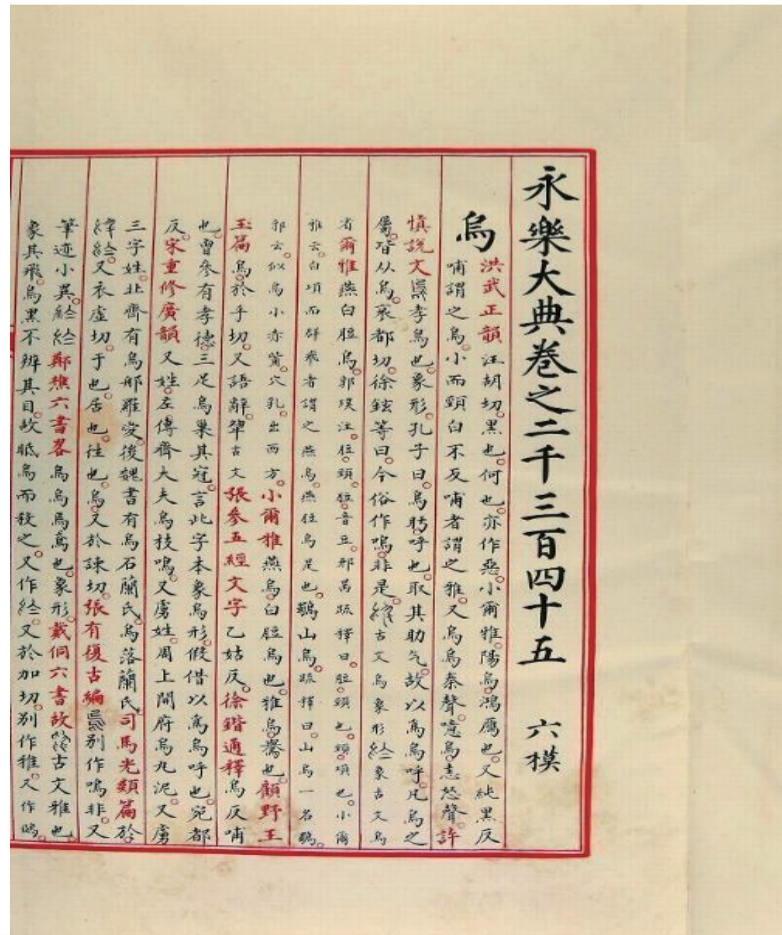 永樂大典卷之二千三百四十五 六模
烏
洪武正韻汪胡切黑也何也亦作惡小爾雅陽烏鴻鴈也又純黑反
哺謂之烏小而頸白不反哺者謂之雅又烏烏秦聲噫烏恚怒聲許
慎說文孝烏也象形孔子曰烏肟呼也取其助气故以爲烏呼凡烏之
屬皆从烏哀都切徐鉉等曰今俗作嗚非是古文烏象形象古文烏
省爾雅燕白脰烏郭璞注脰頸脰音豆邢昺疏釋曰脰頸也頸項也小爾
雅云白項而群飛者謂之燕烏燕脰烏足也鸒山烏疏釋曰山烏一名鸒
郭云似烏小赤觜穴乳出西方小爾雅燕烏白脰烏也雅烏鸒也顧野王
玉篇烏於乎切又語辭古文張參五經文字乙姑反徐鍇通釋烏反哺
也曾參有孝德三足烏巢其冠言此字本象烏形假借以爲烏呼也宛都
反宋重修廣韻又姓左傳齊大夫烏枝鳴又虜姓周上開府烏丸泥又虜
三字姓北齊有烏那羅愛後魏書有烏石蘭氏烏落蘭氏司馬光類篇於
又衣虛切于也居也往也烏又於諫切張有復古編別作嗚非又
筆迹小異鄭樵六書畧烏烏馬鳶也象形戴侗六書故古文雅也
象其飛烏黑不辨其目故眡烏而殺之又作又於加切別作雅又作鴉